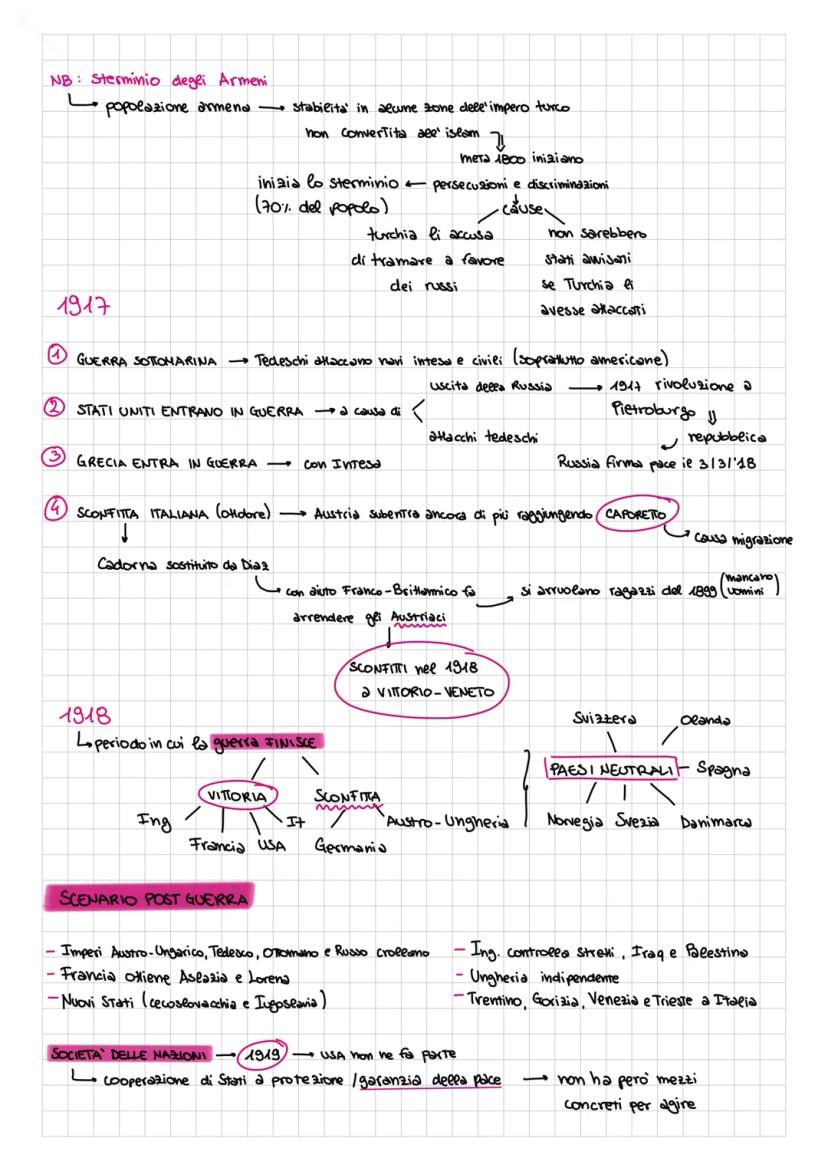 NB: Sterminio degli Armeni
popolazione armena → stabilita' in alcune zone dell'impero turco
non convertita all'islam
metà 1800 iniziano
inizia lo sterminio ← persecuzioni e discriminazioni
(70% del popolo)
cause
turchia li accusa
di tramare a favore
dei russi
non sarebbero
stati avvisati
se Turchia li
avesse attaccati
1917
① GUERRA SOTTOMARINA → Tedeschi attaccano navi intesa e civili (soprattutto americane)
② STATI UNITI ENTRANO IN GUERRA → a causa di
uscita della Russia → 1917 rivoluzione a
Pietroburgo
attacchi tedeschi
repubblica
Russia firma pace il 3/3/'18
③ GRECIA ENTRA IN GUERRA → con Intesa
④ SCONFITTA ITALIANA (ottobre) → Austria subentra ancora di più raggiungendo CAPORETTO
causa migrazione
Cadorna sostituito da Diaz
con aiuto Franco-Brittannico fa
arrendere gli Austriaci
si arruolano ragazzi del 1899 (mancano uomini)
SCONFITTI nel 1918
a VITTORIO-VENETO
1918
periodo in cui la guerra FINISCE
VITTORIA
Ing
Francia
USA
It
SCONFITTA
Germania
Austro-Ungheria
Svizzera
Olanda
PAESI NEUTRALI - Spagna
Norvegia Svezia Danimarca
SCENARIO POST GUERRA
- Imperi Austro-Ungarico, Tedesco, Ottomano e Russo crollano
- Francia ottiene Aslazia e Lorena
- Nuovi Stati (cecoslovacchia e Iugoslavia)
- Ing. controlla Stretti, Iraq e Palestina
- Ungheria indipendente
- Trentino, Gorizia, Venezia e Trieste a Italia
SOCIETA' DELLE NAZIONI → 1919 → USA non ne fa parte
cooperazione di Stati a protezione /garanzia della pace → non ha pero' mezzi
concreti per agire